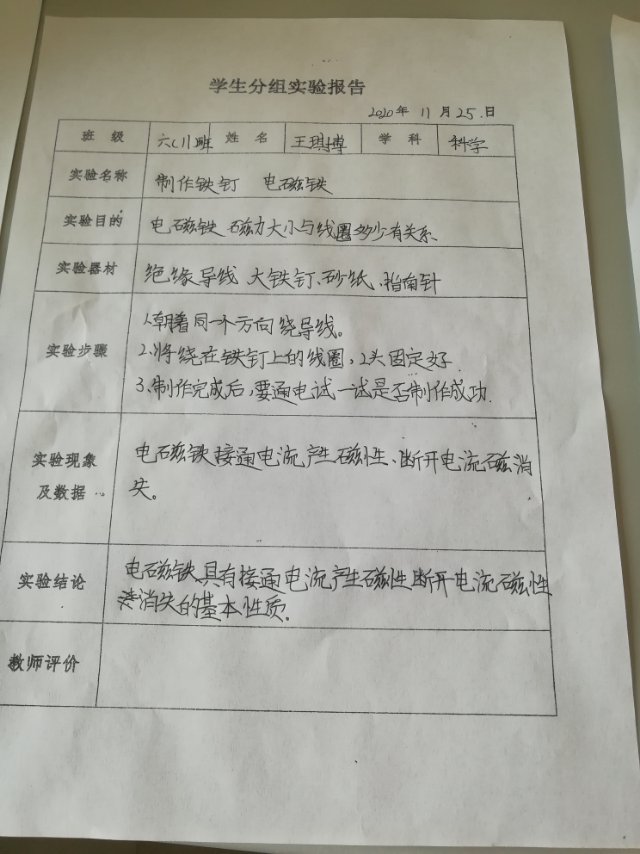 学生分组实验报告
2020年 11月 25.日
班 级 六(1)班 姓 名 王琪博 学 科 科学
实验名称 制作铁钉 电磁铁
实验目的 电磁铁 磁力大小与线圈多少有关系
实验器材 绝缘导线 大铁钉、砂纸、指南针
1、朝着同一个方向绕导线。
实验步骤 2、将绕在铁钉上的线圈,2头固定好
3、制作完成后,要通电试一试是否制作成功.
实验现象 电磁铁接通电流产生磁性、断开电流磁消
及数据 失。
实验结论 电磁铁具有接通电流产生磁性断开电流磁性
消失的基本性质.
教师评价